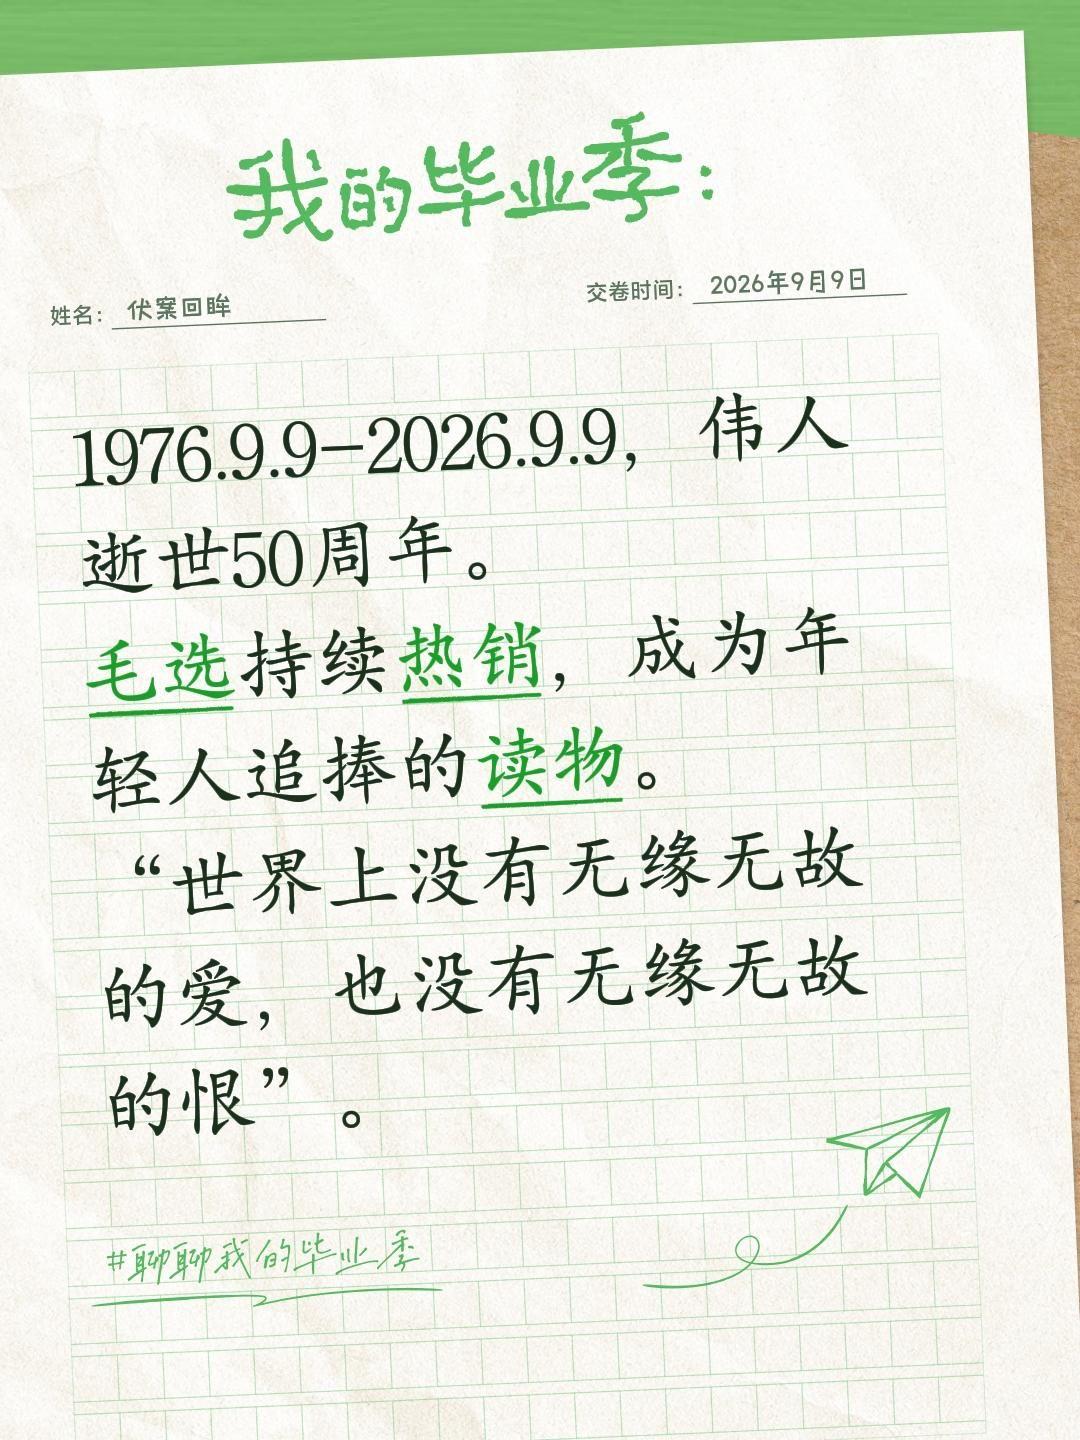 我的毕业季：
姓名： 伏案回眸 交卷时间： 2026年9月9日
1976.9.9-2026.9.9，伟人
逝世50周年。
毛选持续热销，成为年
轻人追捧的读物。
“世界上没有无缘无故
的爱，也没有无缘无故
的恨”。
#聊聊我的毕业季